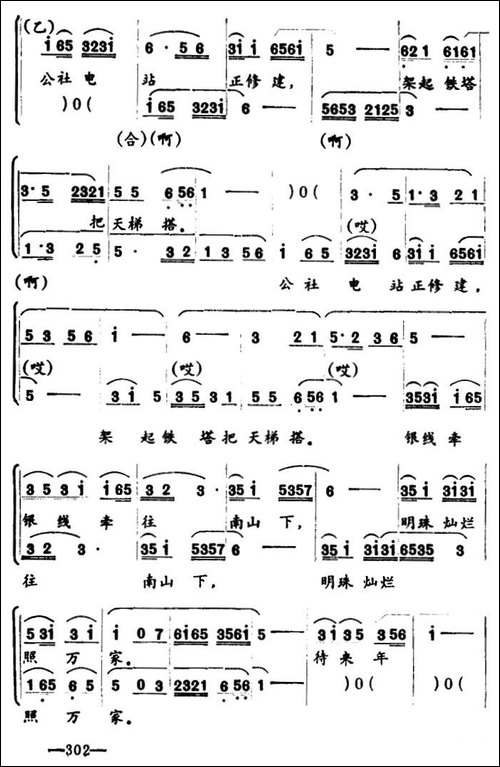 (乙)
i 65 323i 6·56 3i i 656i 5 — 621 6161
公社电 站 正修建, 架起铁塔
)0( i65 323i 6 — 5653 2125 3 —
(合)(啊) (啊)
3·5 2321 55 6561 — )0( 3·5 1·3 21
把天梯搭。 (哎)
1·3 25 5·32 1356 i 65 323i 3i i 656i
(啊) 公社 电 站正修建,
53 56 i — 6 — 3 21 5·2 36 5 —
(哎) (哎) (哎)
5 — 3i5 35 31 55 6561 — 353i i65
架 起铁 塔把 天梯搭。 银线牵
353i i65 32 3· 35i 5357 6 — 35i 3i3i
银 线 牵 往 南山 下, 明珠灿烂
32 3· 35i 5357 6 — 35i 3i3i 6535 3
往 南山 下, 明珠 灿烂
53i 3i i 07 6i65 356i 5 — 3i35 356 i —
照 万 家。 待来年
165 65 5 03 2321 6561 — )0( )0(
照 万 家。
—302—